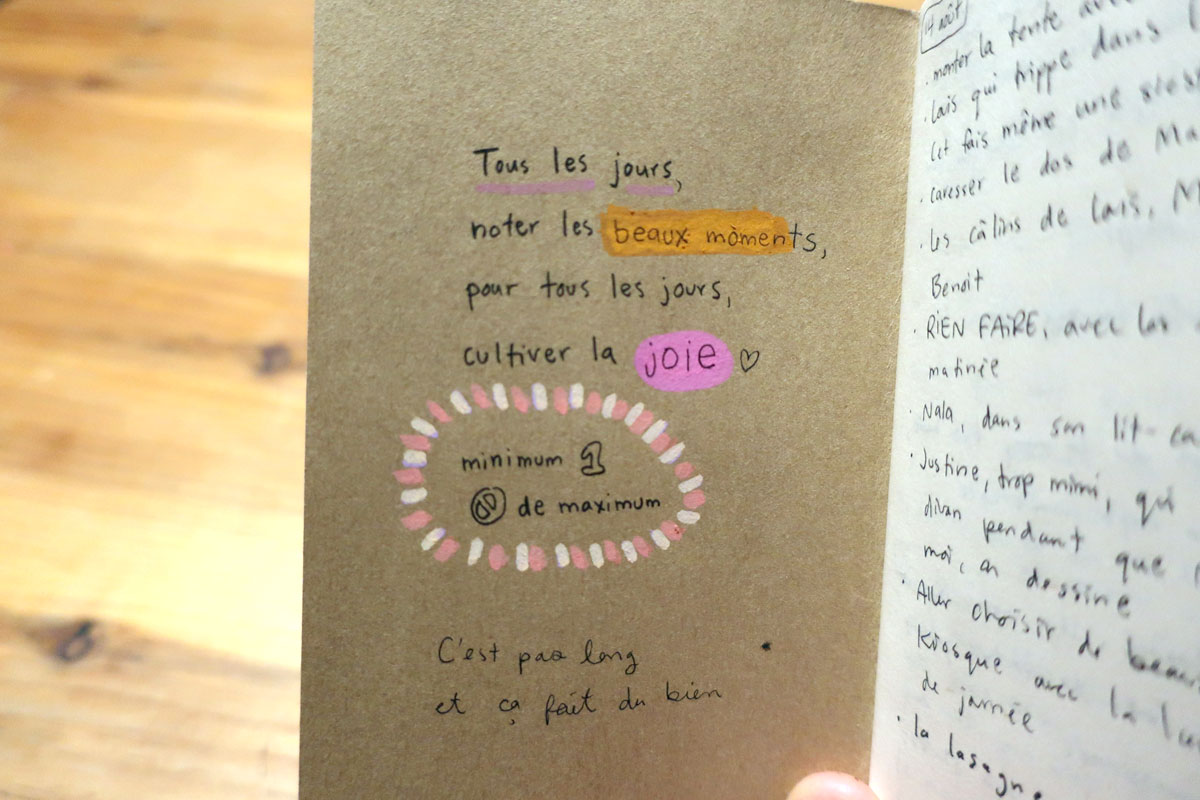 Tous les jours,
noter les beaux moments,
pour tous les jours,
cultiver la joie ♡
minimum 1
∞ de maximum
C'est pas long
et ça fait du bien
14 août
. monter la tente
. Laïs qui trippe dans
même une
. caresser le dos de Ma
. les câlins de Laïs, M
Benoit
. RIEN FAIRE, avec
matinée
. Nala, dans son lit-ca
. Justine, trop mimi, qui
divan pendant que
moi, on dessine
. Aller choisir de beau
Kiosque avec la
de jarnée
. la lasagne